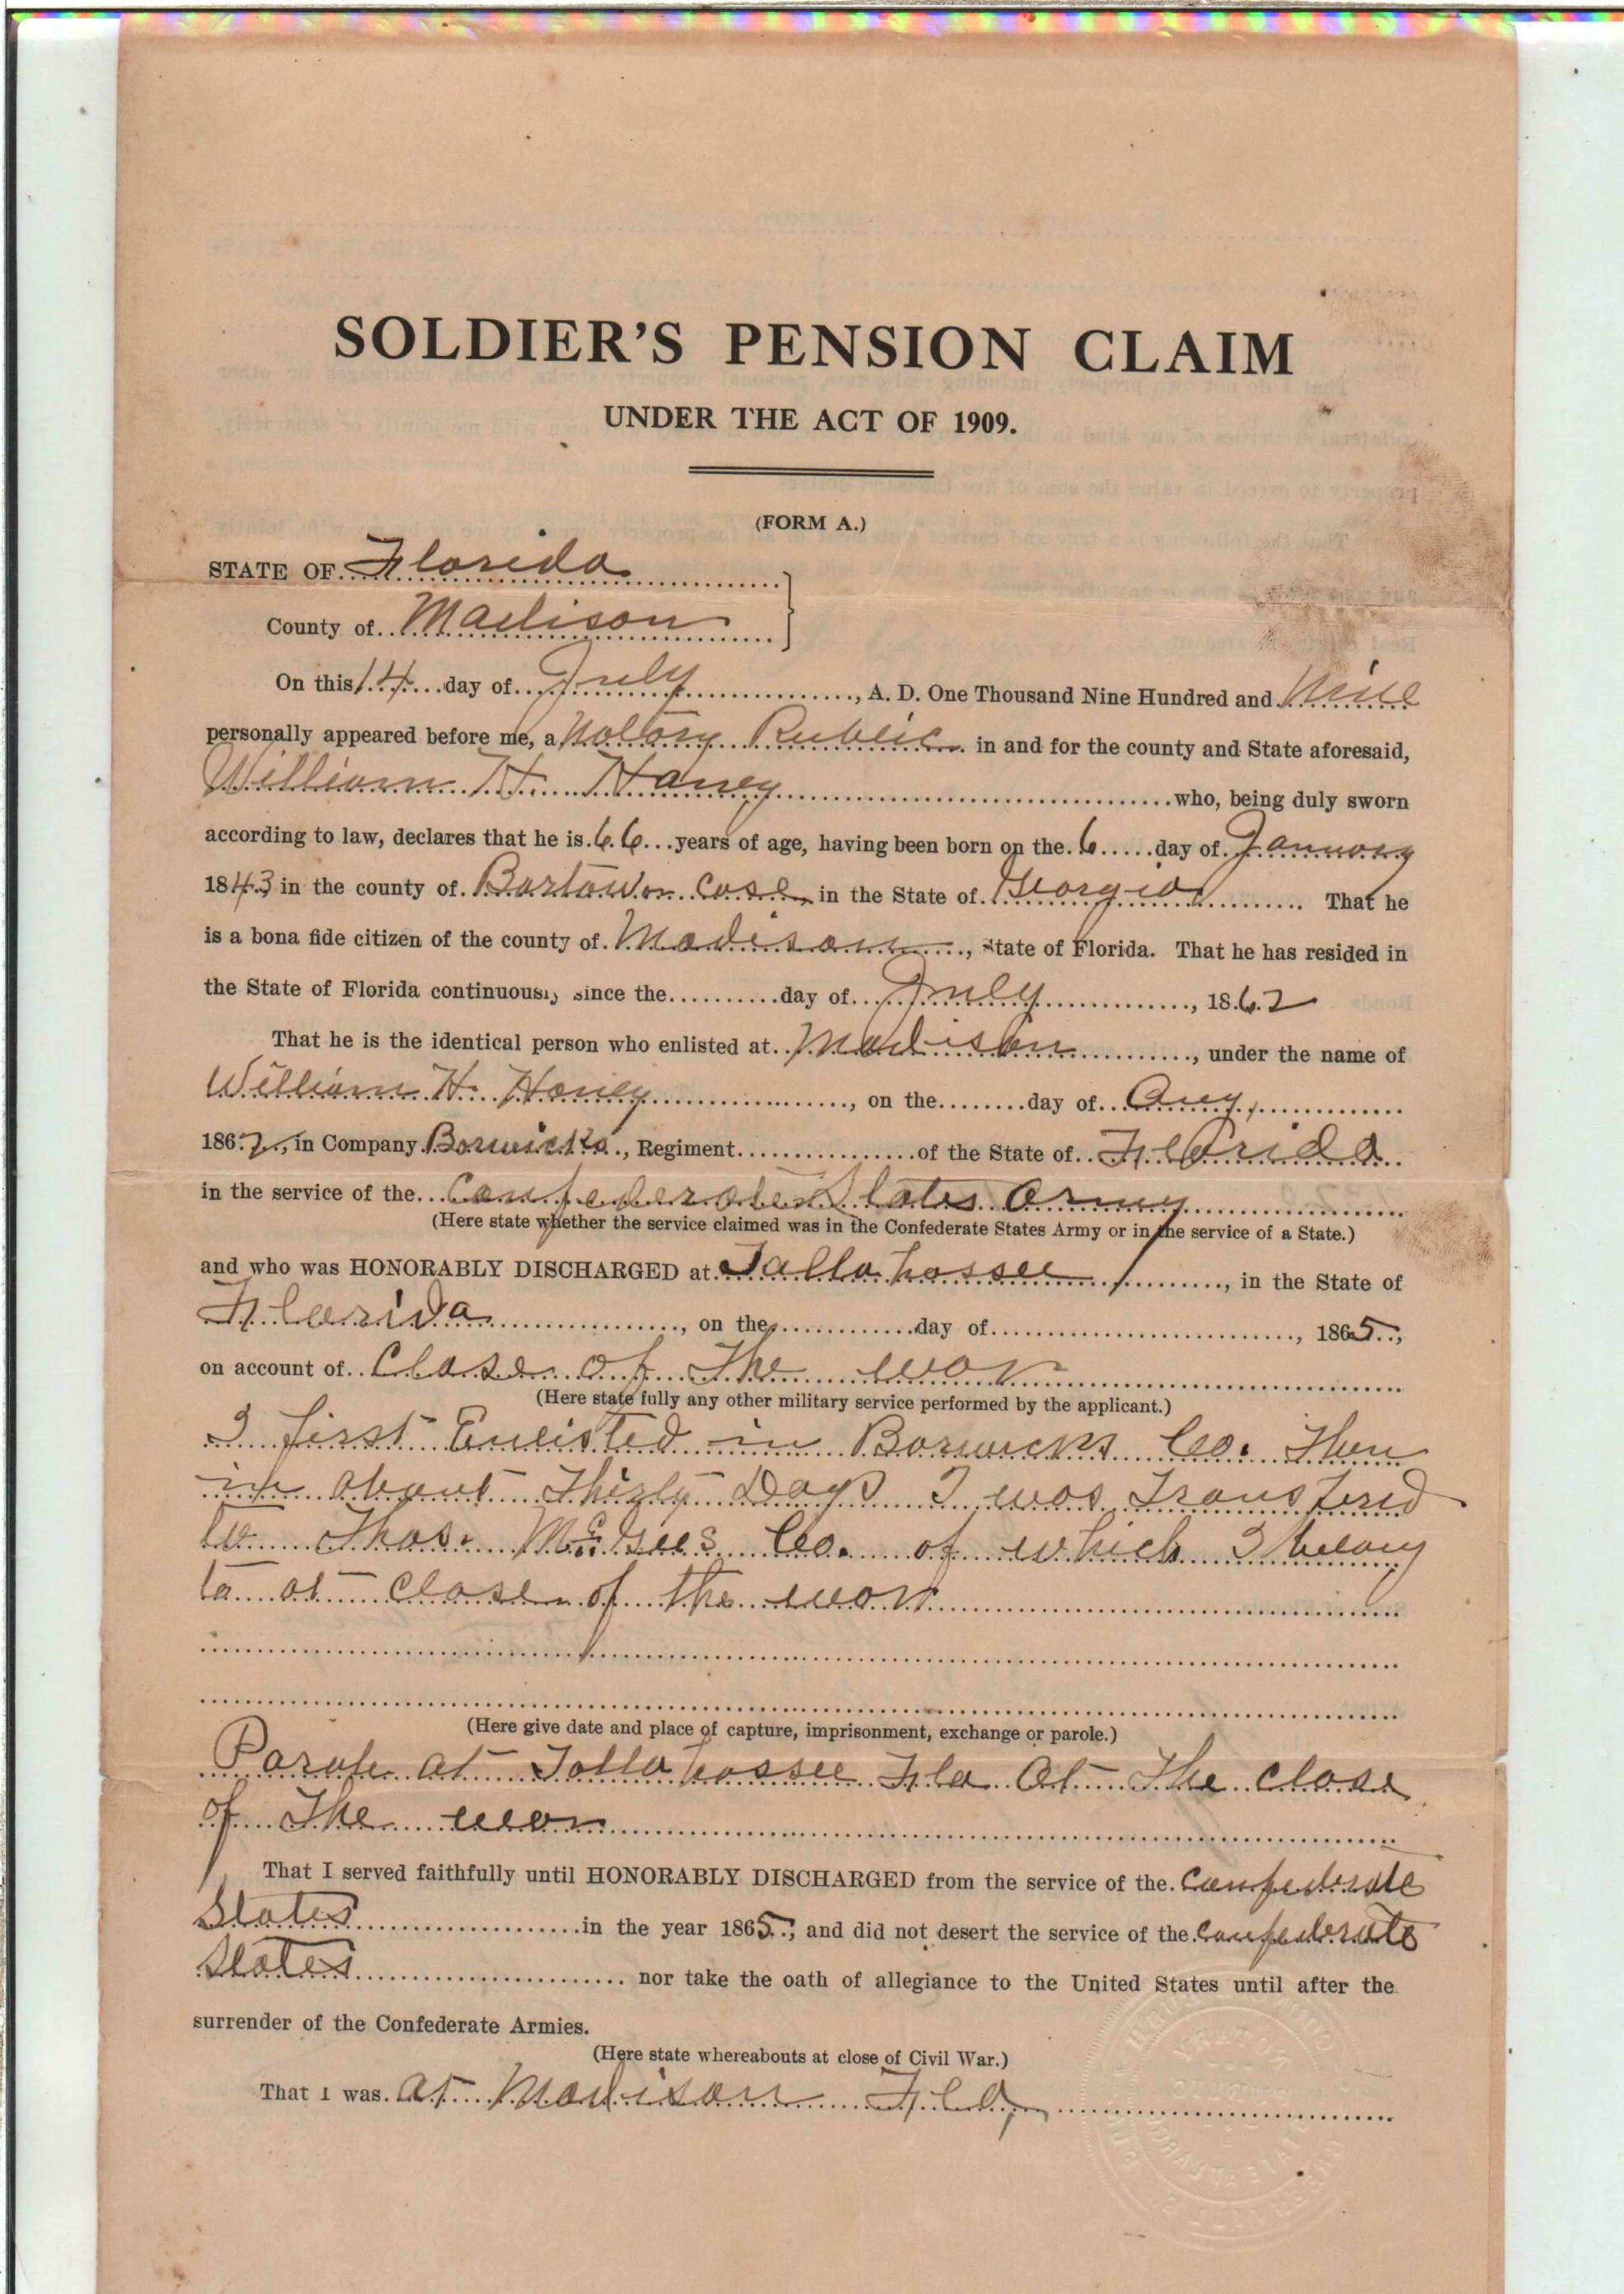 SOLDIER'S PENSION CLAIM
UNDER THE ACT OF 1909.
(FORM A.)
STATE OF Florida
County of Madison
On this 14 day of July, A. D. One Thousand Nine Hundred and Nine
personally appeared before me, a Notary Public in and for the county and State aforesaid,
William H. Haney who, being duly sworn
according to law, declares that he is 66 years of age, having been born on the 6 day of January
1843 in the county of Bartow or Cass in the State of Georgia That he
is a bona fide citizen of the county of Madison, State of Florida. That he has resided in
the State of Florida continuously since the day of July, 1862
That he is the identical person who enlisted at Madison, under the name of
William H. Haney, on the day of Aug,
1862, in Company Borwicks, Regiment of the State of Florida
in the service of the Confederate States Army
(Here state whether the service claimed was in the Confederate States Army or in the service of a State.)
and who was HONORABLY DISCHARGED at Tallahassee, in the State of
Florida, on the day of, 1865,
on account of Close of the war
(Here state fully any other military service performed by the applicant.)
I first Enlisted in Borwicks Co. Then
in about Thirty Days I was Transfered
to Thos. McGees Co. of which I belong
to at close of the war
(Here give date and place of capture, imprisonment, exchange or parole.)
Parole at Tallahassee Fla At The close
of The war
That I served faithfully until HONORABLY DISCHARGED from the service of the Confederate
States in the year 1865; and did not desert the service of the Confederate
States nor take the oath of allegiance to the United States until after the
surrender of the Confederate Armies.
(Here state whereabouts at close of Civil War.)
That I was at Madison Fla,